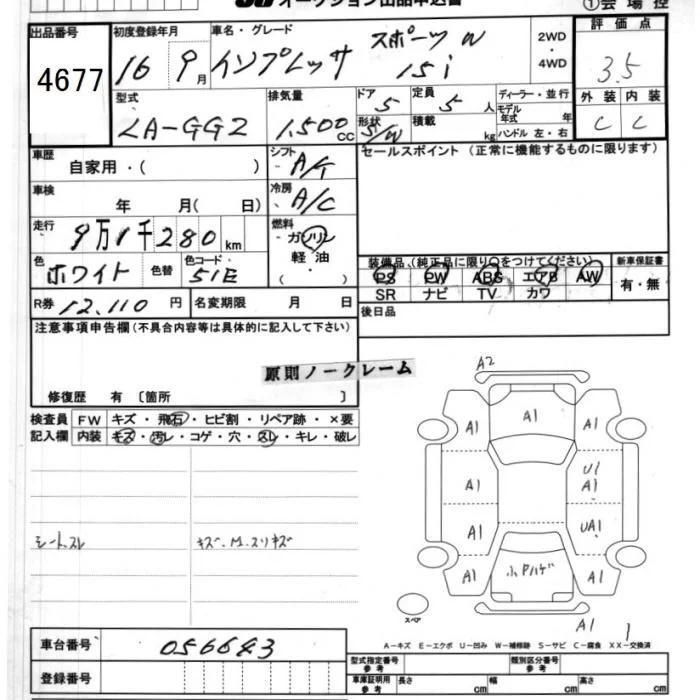 オークション出品申込書
①会場控
出品番号 初度登録年月 車名・グレード 2WD・4WD 評価点
4677 16 9月 インプレッサ スポーツW 15i 3.5
型式 排気量 ドア 定員 ディーラー・並行 外装 内装
LA-GG2 1,500cc 5 5人 モデル年式 年 C C
形状 S/W 積載 kg ハンドル 左・右
車歴 自家用・( ) シフト A/T セールスポイント (正常に機能するものに限ります)
車検 年 月( 日) 冷房 A/C
走行 9万1千280km 燃料 ガソリン・軽油・( )
色 ホワイト 色替 色コード 51E
装備品 (純正品に限り○をつけてください) 新車保証書
PS PW ABS エアB AW 有・無
SR ナビ TV カワ
R券 12,110円 名変期限 月 日 後日品
注意事項申告欄 (不具合内容等は具体的に記入して下さい)
原則ノークレーム
修復歴 有 〔箇所 〕
検査員記入欄 FW キズ・飛石・ヒビ割・リペア跡・×要
内装 キズ・汚レ・コゲ・穴・スレ・キレ・破レ
シートスレ キズ.M.スリキズ
A2
A1 A1 A1
U1
A1 A1
A1 UA1
A1 小Pハゲ A1
スペア
A1
A-キズ E-エクボ U-凹み W-補修跡 S-サビ C-腐食 XX-交換済
車台番号 056683
登録番号
型式指定番号 参考 類別区分番号 参考
車庫証明用 参考 長さ cm 幅 cm 高さ cm